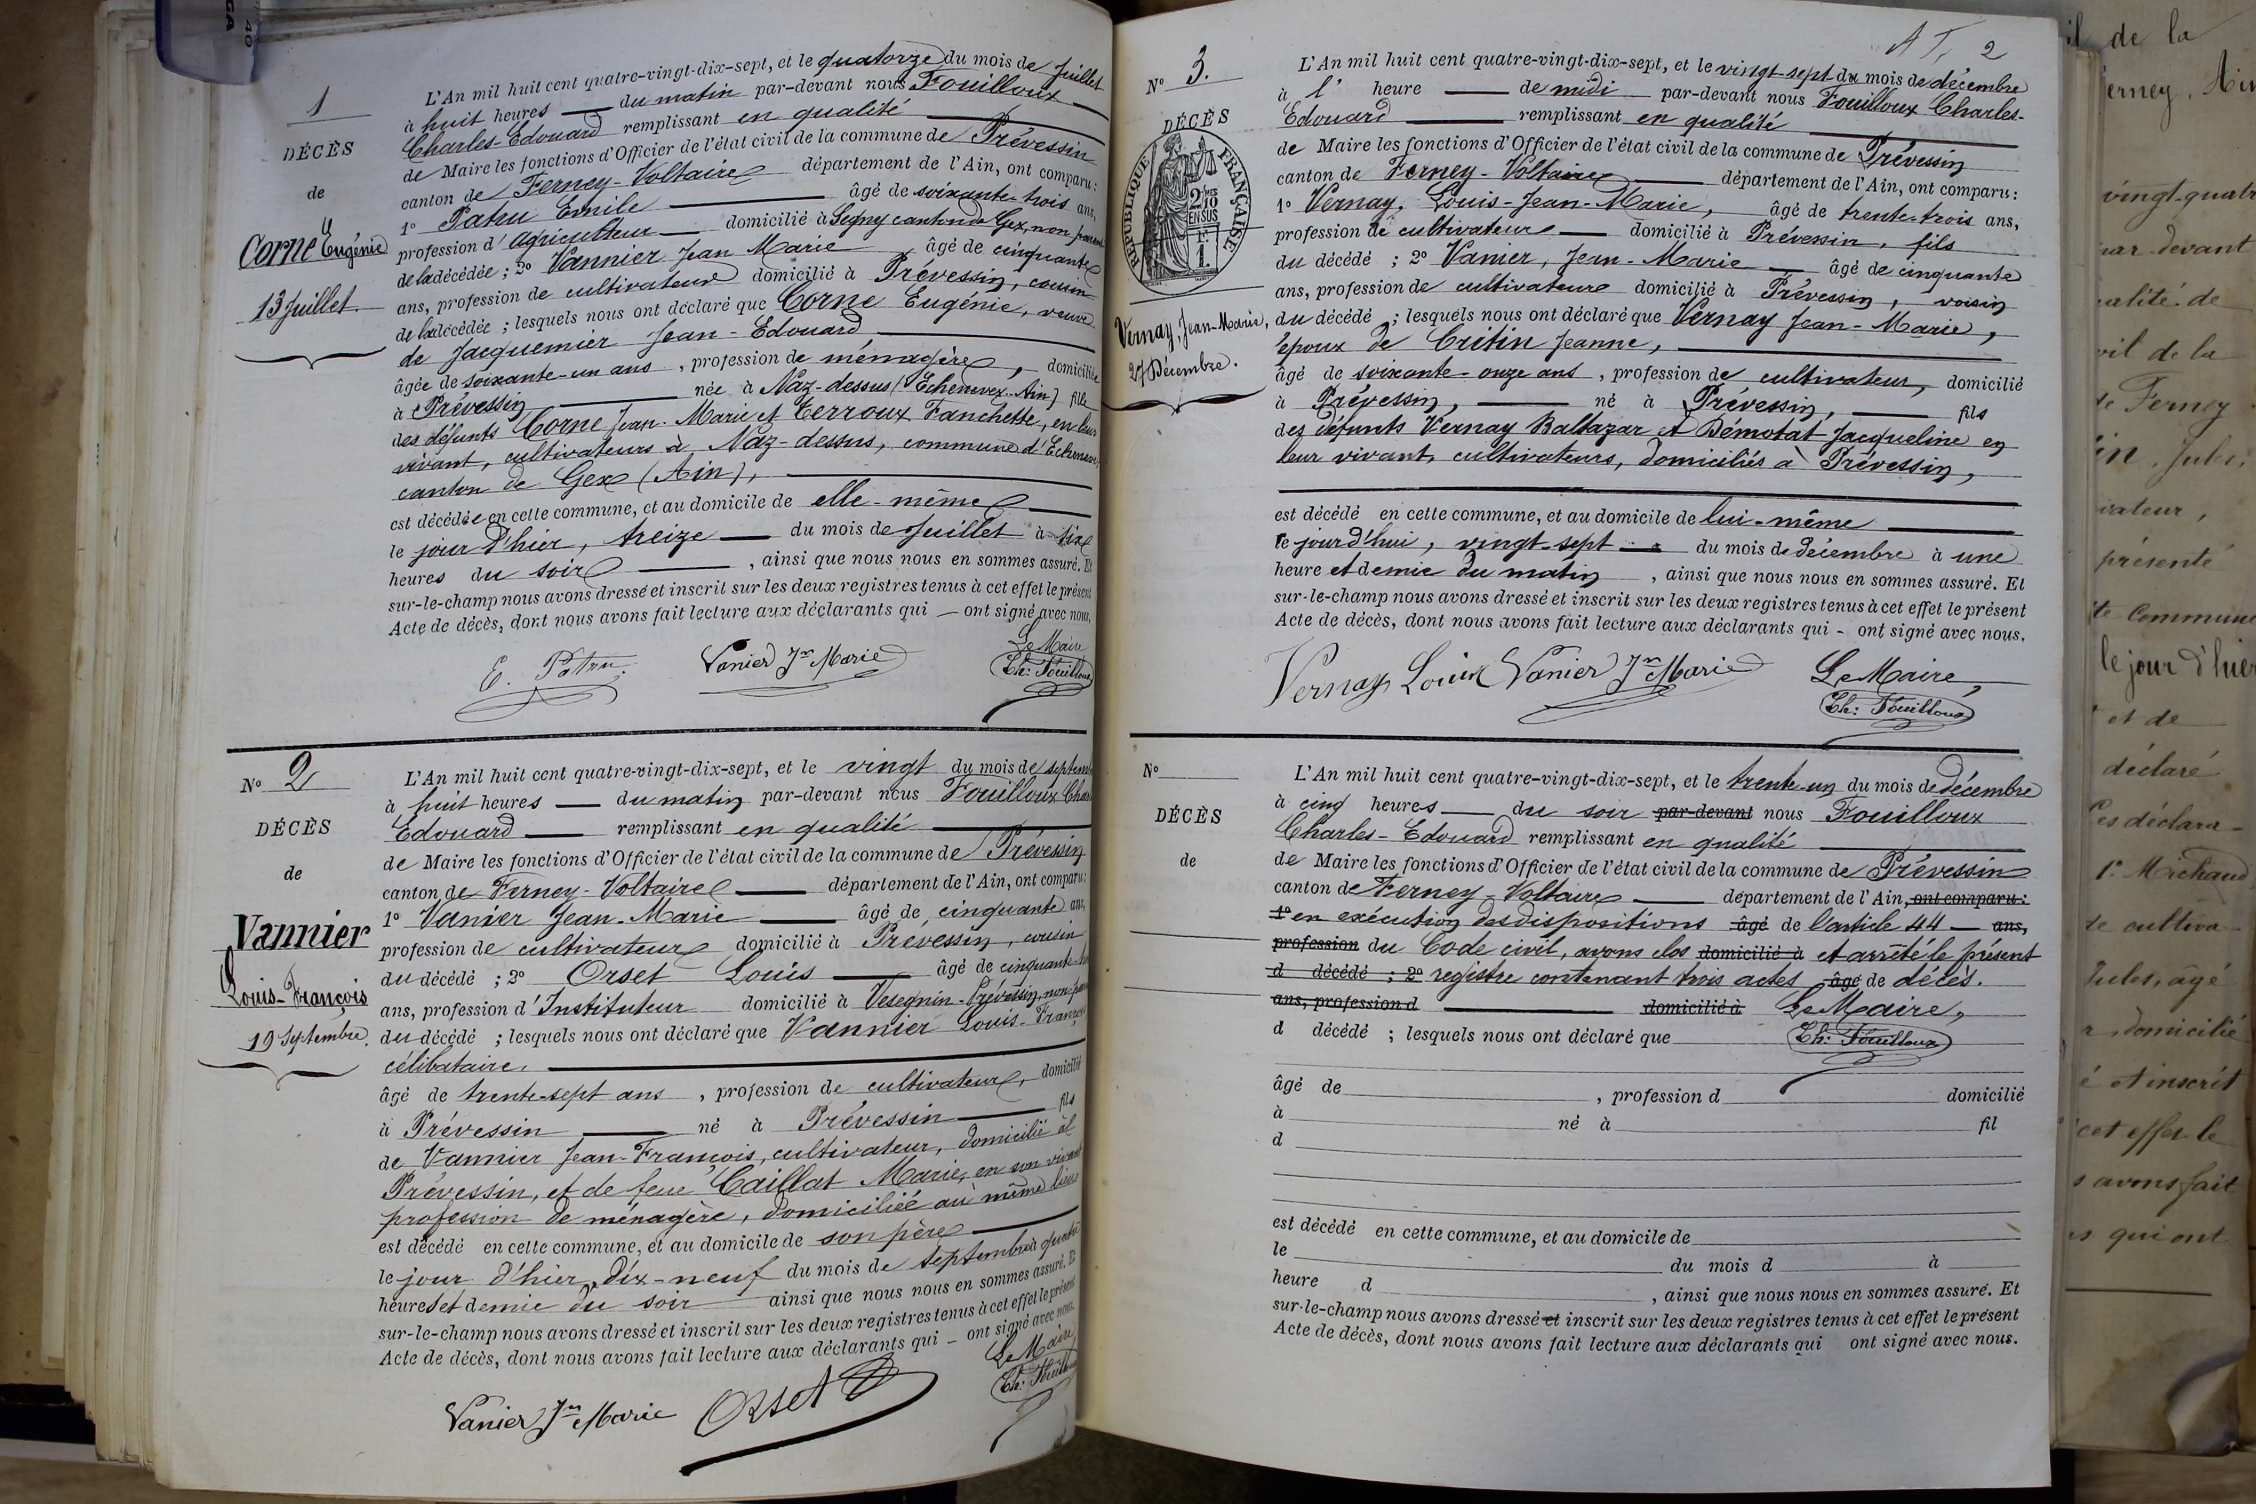 1
DÉCÈS
de
Corne Eugénie
13 Juillet.
L'An mil huit cent quatre-vingt-dix-sept, et le quatorze du mois de Juillet
à huit heures du matin par-devant nous Fouilloux
Charles-Edouard remplissant en qualité
de Maire les fonctions d'Officier de l'état civil de la commune de Prévessin
canton de Ferney-Voltaire département de l'Ain, ont comparu:
1° Patru Emile âgé de soixante-trois ans,
profession d'Agriculteur domicilié à Segny canton de Gex, non parent
de la décédée; 2° Vannier Jean Marie, âgé de cinquante
ans, profession de cultivateur domicilié à Prévessin, cousin
de la décédée; lesquels nous ont déclaré que Corne Eugénie, veuve
de Jacquemier Jean-Edouard
âgée de soixante-un ans, profession de ménagère, domiciliée
à Prévessin née à Naz-dessus (Echenevex-Ain) fille
des défunts Corne Jean-Marie et Terroux Fanchette, en leur
vivant, cultivateurs à Naz-dessus, commune d'Echenevex,
canton de Gex (Ain),
est décédée en cette commune, et au domicile de elle-même
le jour d'hier, treize du mois de Juillet à six
heures du soir, ainsi que nous nous en sommes assuré. Et
sur-le-champ nous avons dressé et inscrit sur les deux registres tenus à cet effet le présent
Acte de décès, dont nous avons fait lecture aux déclarants qui — ont signé avec nous.
E. Patru. Vanier Jn Marie Le Maire
Ch: Fouilloux
N° 2
DÉCÈS
de
Vannier
Louis-François
19 Septembre.
L'An mil huit cent quatre-vingt-dix-sept, et le vingt du mois de septemb
à huit heures du matin par-devant nous Fouilloux Char
Edouard remplissant en qualité
de Maire les fonctions d'Officier de l'état civil de la commune de Prévessin
canton de Ferney-Voltaire département de l'Ain, ont comparu:
1° Vanier Jean-Marie âgé de cinquante ans,
profession de cultivateur domicilié à Prévessin, cousin
du décédé; 2° Orset Louis âgé de cinquante
ans, profession d'Instituteur domicilié à Vesegnin-Prévessin, non
du décédé; lesquels nous ont déclaré que Vannier Louis-François
célibataire,
âgé de trente-sept ans, profession de cultivateur, domicilié
à Prévessin né à Prévessin fils
de Vannier Jean-François, cultivateur, domicilié à
Prévessin, et de feue Caillat Marie, en son vivant
profession de ménagère, domiciliée au même lieu
est décédé en cette commune, et au domicile de son père
le jour d'hier, dix-neuf du mois de septembre à quatre
heures et demie du soir ainsi que nous nous en sommes assuré. Et
sur-le-champ nous avons dressé et inscrit sur les deux registres tenus à cet effet le présent
Acte de décès, dont nous avons fait lecture aux déclarants qui — ont signé avec nous.
Vanier Jn Marie Orset Le Maire
Ch: Fouilloux
2
N° 3.
DÉCÈS
RÉPUBLIQUE FRANÇAISE
2/10 EN SUS
1.
Vernay, Jean-Marie,
27 Décembre.
L'An mil huit cent quatre-vingt-dix-sept, et le vingt-sept du mois de décembre
à l' heure de midi par-devant nous Fouilloux Charles-
Edouard remplissant en qualité
de Maire les fonctions d'Officier de l'état civil de la commune de Prévessin
canton de Ferney-Voltaire département de l'Ain, ont comparu:
1° Vernay, Louis-Jean-Marie, âgé de trente-trois ans,
profession de cultivateur domicilié à Prévessin, fils
du décédé; 2° Vanier, Jean-Marie âgé de cinquante
ans, profession de cultivateur domicilié à Prévessin, voisin
du décédé; lesquels nous ont déclaré que Vernay Jean-Marie,
époux de Critin Jeanne,
âgé de soixante-onze ans, profession de cultivateur, domicilié
à Prévessin, né à Prévessin, fils
des défunts Vernay Baltazar et Démotat Jacqueline en
leur vivant, cultivateurs, domiciliés à Prévessin,
est décédé en cette commune, et au domicile de lui-même
le jour d'hui, vingt-sept du mois de décembre à une
heure et demie du matin, ainsi que nous nous en sommes assuré. Et
sur-le-champ nous avons dressé et inscrit sur les deux registres tenus à cet effet le présent
Acte de décès, dont nous avons fait lecture aux déclarants qui - ont signé avec nous.
Vernay Louis Vanier Jn Marie Le Maire,
Ch: Fouilloux
N°
DÉCÈS
de
L'An mil huit cent quatre-vingt-dix-sept, et le trente-un du mois de décembre
à cinq heures du soir par-devant nous Fouilloux
Charles-Edouard remplissant en qualité
de Maire les fonctions d'Officier de l'état civil de la commune de Prévessin
canton de Ferney-Voltaire département de l'Ain, ont comparu:
1° en exécution des dispositions âgé de l'article 44 ans,
profession du Code civil, avons clos domicilié à et arrêté le présent
d décédé; 2° registre contenant trois actes âgé de décès.
ans, profession d domicilié à Le Maire,
d décédé; lesquels nous ont déclaré que Ch: Fouilloux
âgé de , profession d domicilié
à né à fil
d
est décédé en cette commune, et au domicile de
le du mois d à
heure d , ainsi que nous nous en sommes assuré. Et
sur-le-champ nous avons dressé et inscrit sur les deux registres tenus à cet effet le présent
Acte de décès, dont nous avons fait lecture aux déclarants qui ont signé avec nous.
de la
vingt-quatr
devant
de
de la
de Ferney
présenté
commune
le jour d'hier
et de
déclaré
Ces déclara-
1° Michaud
de cultiva-
Jules, âgé
domicilié
et inscrit
cet effet le
avons fait
qui ont